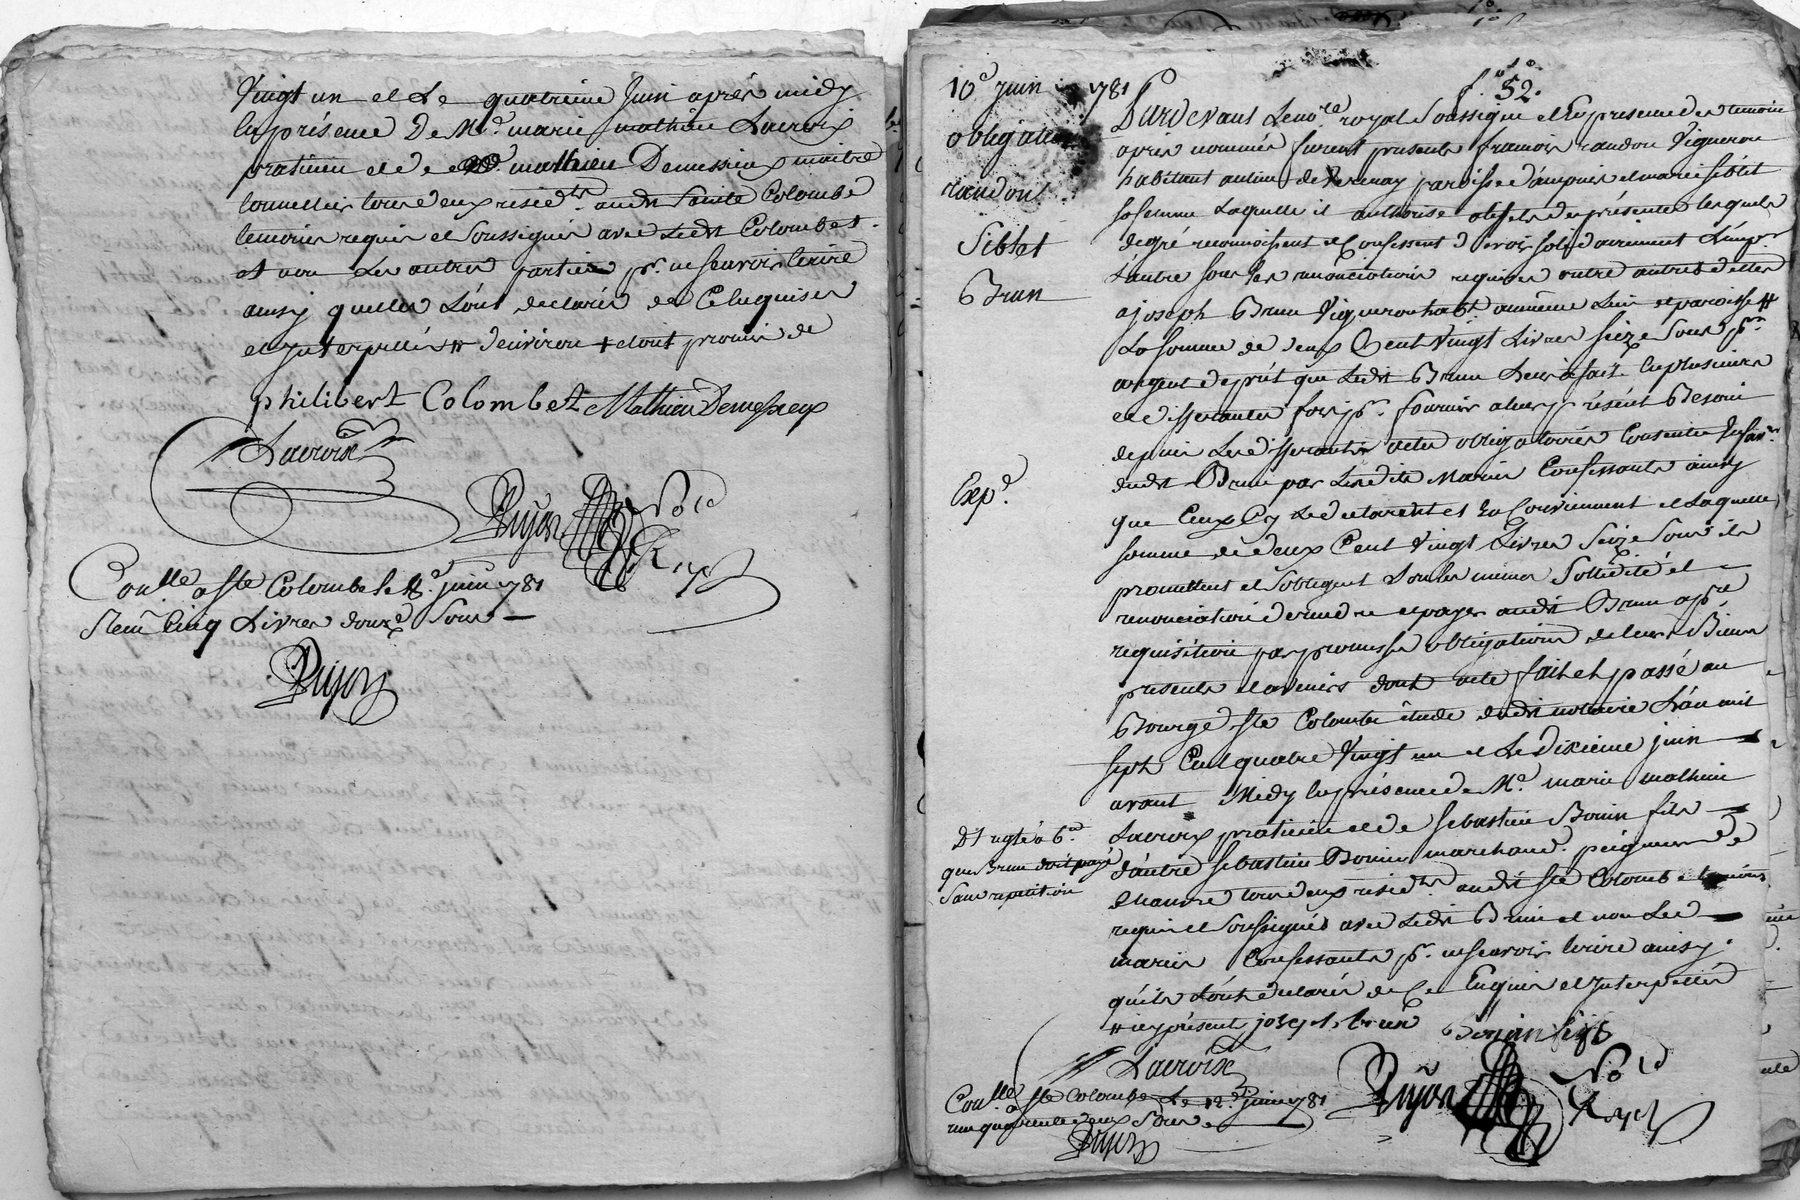 Vingt un et Le quatrieme Juin après midy
En présence De Me. marie mathieu Lacroix
praticien et de mathieu Demessieux maitre
tonnellier tous deux résidts. audt Sainte Colombe
temoins requis et Soussignés avec Ledt Colombet
et non Les autres parties pr. ne sçavoir Ecrire
ainsy quelles L'ont declarés de Ce Enquises
et Interpellés # d'environ + et ont promis de
philibert Colombet Mathieu Demessieux
Lacroix
Dujon No re
Royal
Conllé a Ste Colombe le juin 1781
Reçu Cinq Livres douze Sous
Dujon
10e juin 1781
obligation
randon
Siblet
Brun
Expé.
f. 52.
Pardevant Le nore royal Soussigné et En présence des temoins
après nommés furent presents francois randon Vigneron
habitant au lieu de paroisse d'ampuis et marie siblet
sa femme Laquelle il authorise a l'effet des présentes lesquels
de gré reconnoissent et Confessent devoir solidairement L'un pr.
L'autre sous les renonciations requises outre autres dettes
a joseph Brun Vigneron habt. au même Lieu et paroisse #
La Somme de deux Cent Vingt Livres seize Sous pr.
argent de prêt que Ledt Brun Leur a fait En plusieurs
et differantes fois pr. fournir a leur présent Besoin
depuis Les differantes actes obligatoires Consentis En fav.
dudt Brun par Lesdits Mariés Confessants ainsy
que Ceux Cy Le declarent et En Conviennent et Laquelle
somme de deux Cent Vingt Livres Seize Sous ils
promettent et S'obligent Sous les mêmes Sollidité et
renonciation de rendre et payer audt Brun a pre
requisition par promesse obligation de leurs Biens
presents et avenirs dont acte fait et passé au
Bourg de Ste Colombe étude dudt notaire L'an mil
sept Cent quatre Vingt un et Le Dixieme juin
avant Midy En présence de Me. marie mathieu
Lacroix praticien et de sebastien Bonin fils
d'autre sebastien Bonin marchand peigneur de
Chanvre tous deux résidts audt Ste Colombe temoins
requis et Soussignés avec Ledt Brun et non Les
mariés Confessants pr. ne sçavoir Ecrire ainsy
qu'ils L'ont declarés de Ce Enquis et Interpellés
# icy présent joseph brun Bonin fils
Dt reglé a
que Brun doit payé
Sans repetition
Lacroix
Dujon No re
Royal
Conllé a Ste Colombe Le 12e juin 1781
reçu quarente deux Sous
Dujon